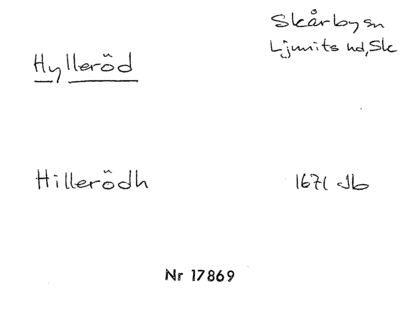 Skårby sn
Ljunits hd, Sk
Hylleröd
Hillerödh 1671 Jb
Nr 17869